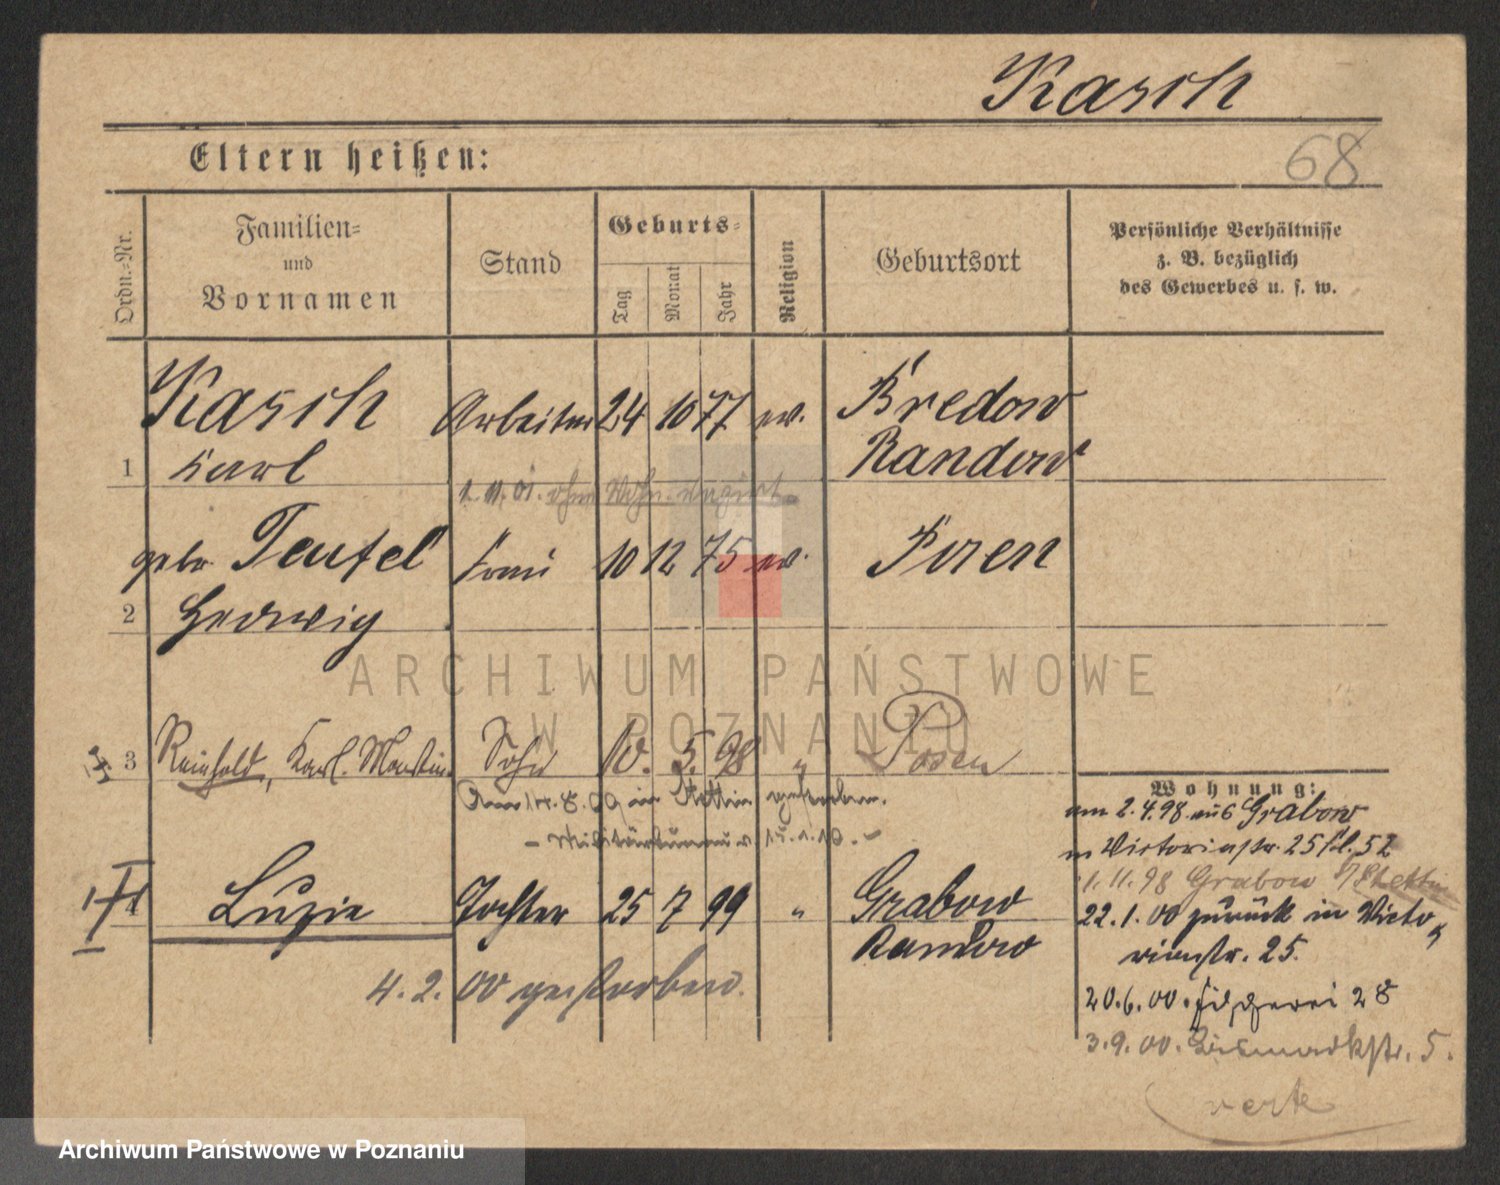 Kasch
Eltern heißen:
68
Ordn.-Nr.
Familien-
und
Vornamen
Stand
Geburts-
Tag
Monat
Jahr
Religion
Geburtsort
Persönliche Verhältnisse
z. B. bezüglich
des Gewerbes u. s. w.
Kasch Arbeiter 24 10 77 ev. Bredow
1 Karl Randow
1. 11. 01. ohne Wohn.
gebr. Teufel Frau 10 12 75 ev. Posen
2 Hedwig
3 Reinhold, Karl. Martin Sohn 10. 5. 98 " Posen
Am 14. 8. 09 in Stettin gestorben.
15. 1. 10. -
Luzie Tochter 25 7 99 " Grabow
Randow
4. 2. 00 gestorben.
Wohnung:
am 2. 4. 98 aus Grabow
n Victoriastr. 25 52
1. 11. 98 Grabow Stettin
22. 1. 00 zurück in Victo
riastr. 25.
20. 6. 00. Fischerei 28
3. 9. 00. Bismarckstr. 5.
verte
ARCHIWUM PAŃSTWOWE
W POZNANIU
Archiwum Państwowe w Poznaniu